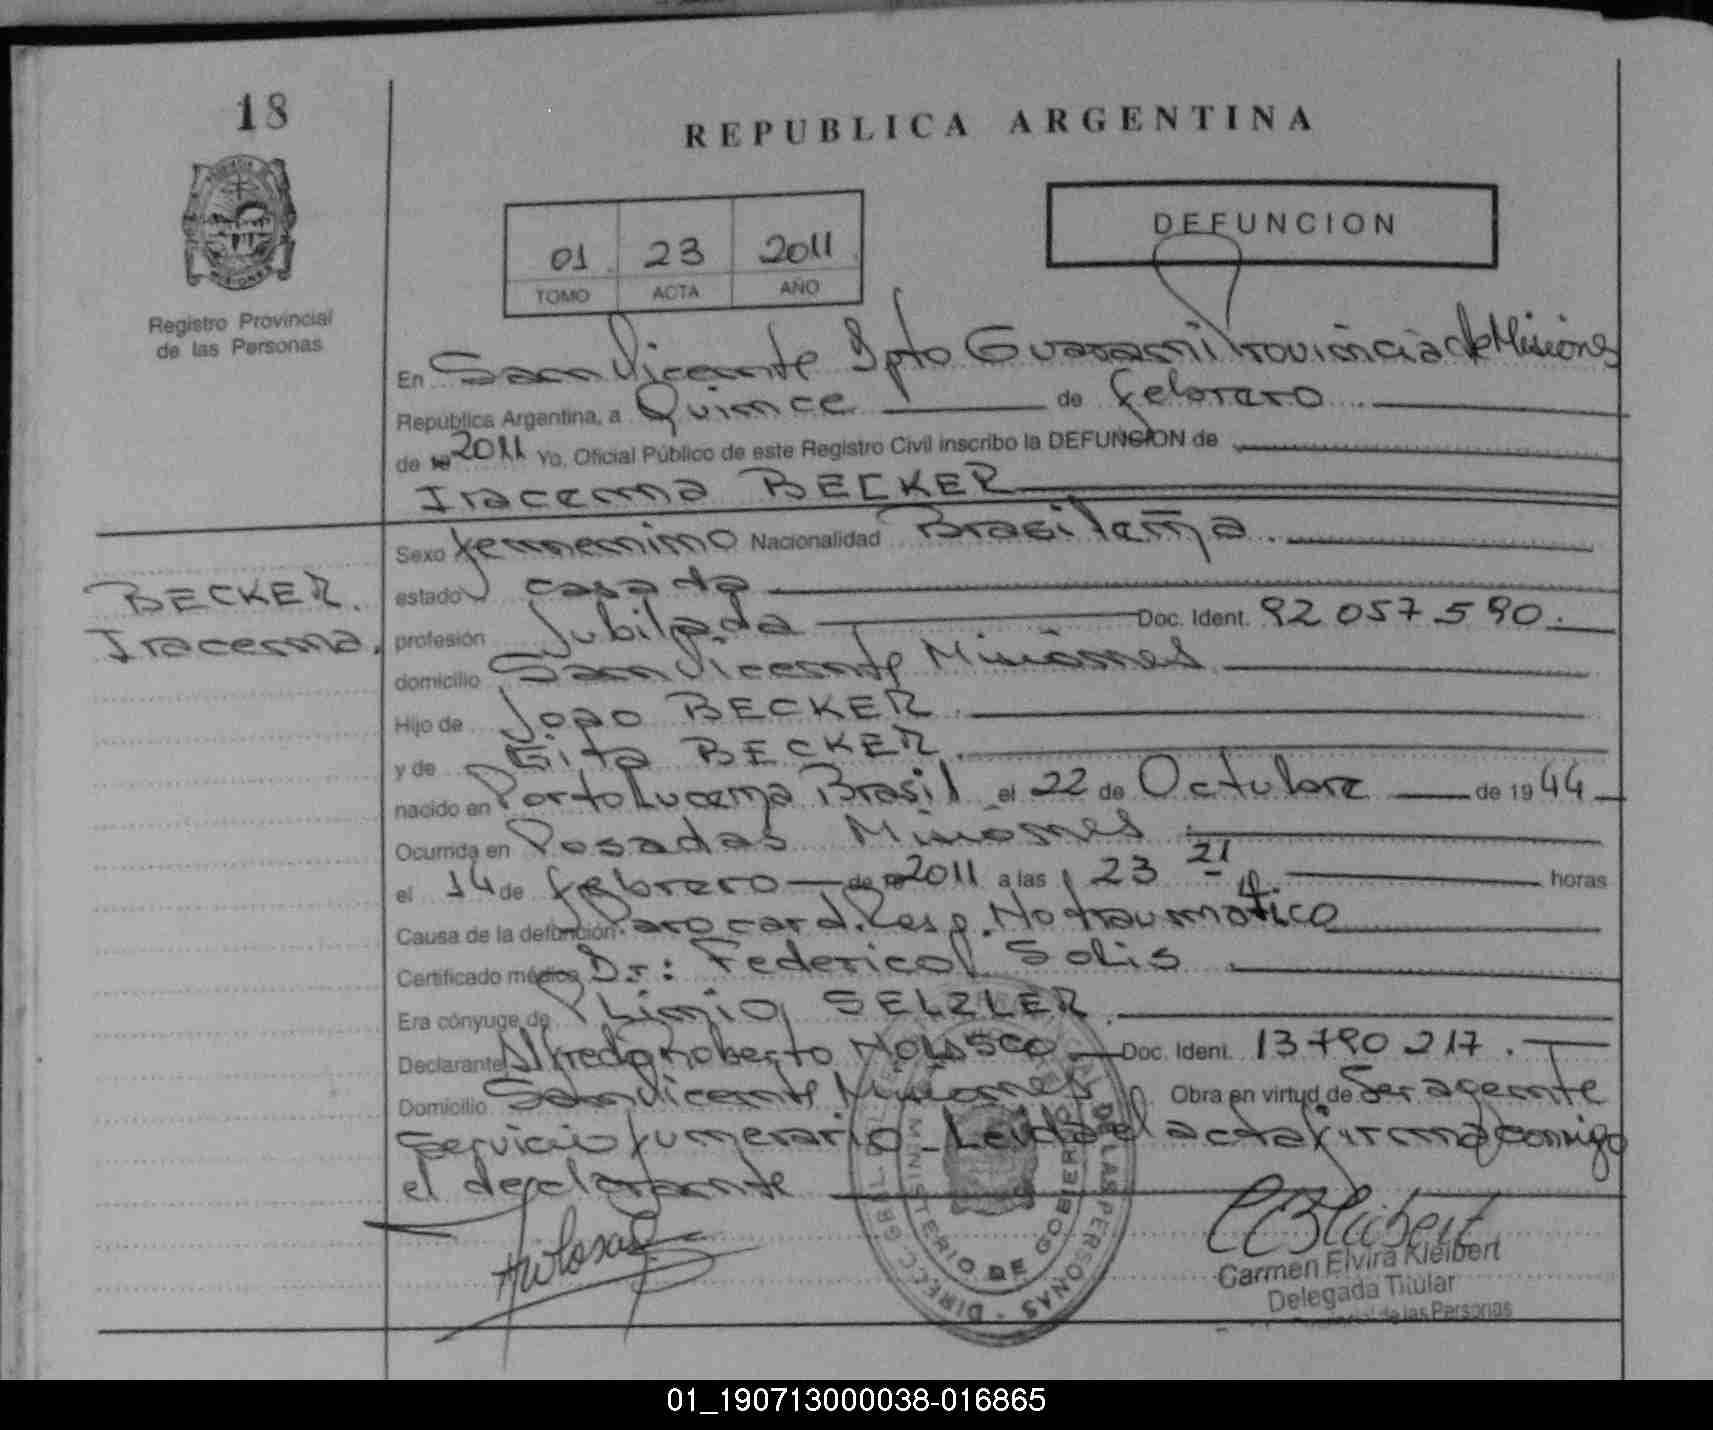 18
REPUBLICA ARGENTINA
DEFUNCION
01 23 2011
TOMO ACTA AÑO
Registro Provincial
de las Personas
En San Vicente Dpto Guarani Provincia de Misiones
República Argentina, a Quince de febrero
de 19 2011 Yo, Oficial Público de este Registro Civil inscribo la DEFUNCION de
Iracema BECKER
BECKER.
Iracema.
Sexo femenino Nacionalidad Brasileña
estado casada
profesión Jubilada Doc. Ident. 92 057 590.
domicilio San Vicente Misiones
Hijo de Joao BECKER
y de Gita BECKER
nacido en Porto Lucena Brasil el 22 de Octubre de 19 44
Ocurrida en Posadas Misiones
el 14 de febrero de 2011 a las 23 21 horas
Causa de la defunción Paro card. Resp. No traumatico
Certificado médico Dr: Federico Solis
Era cónyuge de Plinio SELZLER
Declarante Alfredo Roberto Doc. Ident. 13 790 217.
Domicilio San Vicente Misiones Obra en virtud de Ser agente
Servicio funerario_Leida el acta firma conmigo
el declarante
DIRECC. GRAL. DE LAS PERSONAS
MINISTERIO DE GOBIERNO
Carmen Elvira Kleibert
Delegada Titular
de las Personas
01_190713000038-016865